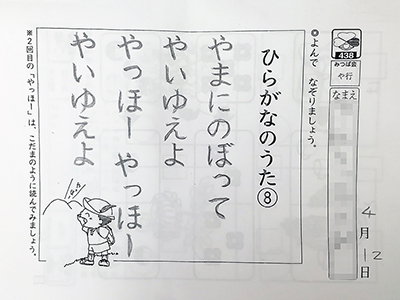 438
みつば会
や行
なまえ
4月12日
◎よんで なぞりましょう。
ひらがなのうた⑧
やまにのぼって
やいゆえよ
やっほー やっほー
やいゆえよ
※2回目の「やっほー」は、こだまのように読んでみましょう。